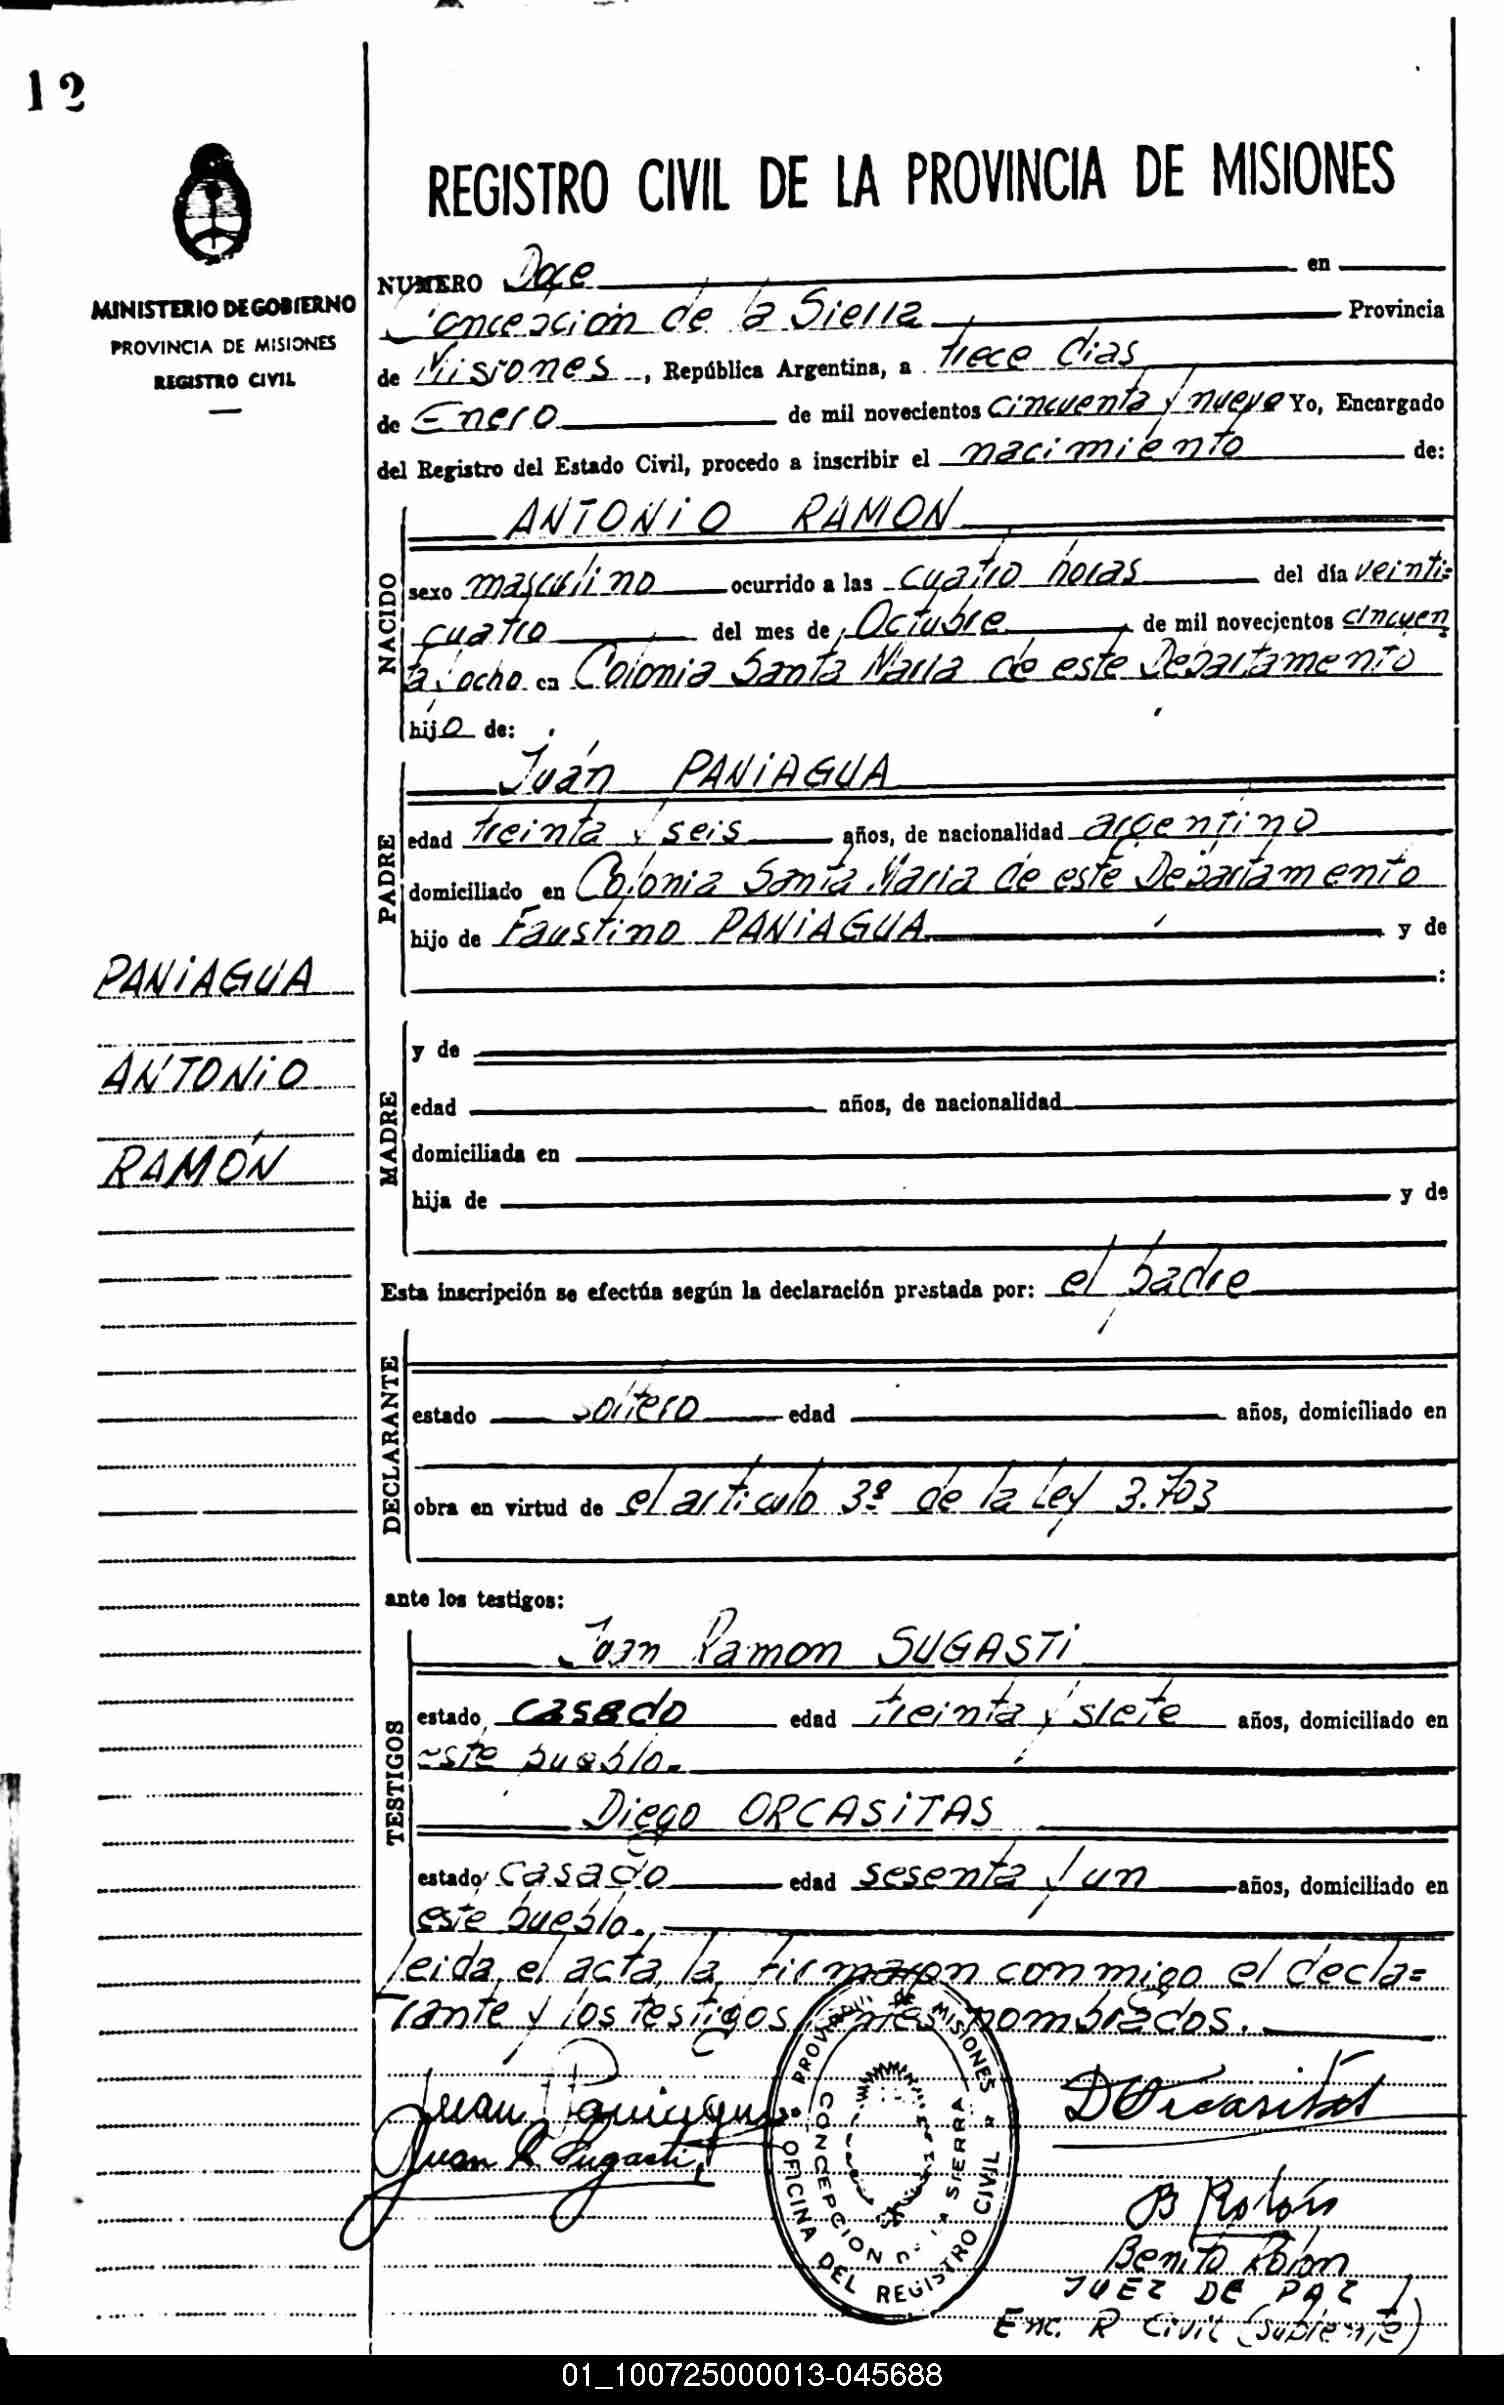 12
REGISTRO CIVIL DE LA PROVINCIA DE MISIONES
MINISTERIO DE GOBIERNO
PROVINCIA DE MISIONES
REGISTRO CIVIL
NUMERO Doce en
Concepcion de la Sierra Provincia
de Misiones, República Argentina, a trece dias
de Enero de mil novecientos cincuenta y nueve Yo, Encargado
del Registro del Estado Civil, procedo a inscribir el nacimiento de:
NACIDO
ANTONIO RAMON
sexo masculino ocurrido a las cuatro horas del día veinti=
cuatro del mes de Octubre de mil novecientos cincuen
ta y ocho en Colonia Santa Maria de este Departamento
hijo de:
PADRE
Juan PANIAGUA
edad treinta y seis años, de nacionalidad argentino
domiciliado en Colonia Santa Maria de este Departamento
hijo de Faustino PANIAGUA y de
:
PANIAGUA
ANTONIO
RAMON
MADRE
y de
edad años, de nacionalidad
domiciliada en
hija de y de
Esta inscripción se efectúa según la declaración prestada por: el padre
DECLARANTE
estado soltero edad años, domiciliado en
obra en virtud de el articulo 3º de la Ley 3.703
ante los testigos:
TESTIGOS
Juan Ramon SUGASTI
estado casado edad treinta y siete años, domiciliado en
este pueblo.
Diego ORCASITAS
estado casado edad sesenta y un años, domiciliado en
este pueblo.
Leida el acta, la firmaron conmigo el decla=
rante y los testigos nombrados.
Juan Paniagua
D Orcasitas
Juan R Sugasti
PROVINCIA DE MISIONES
OFICINA DEL REGISTRO CIVIL
CONCEPCION DE LA SIERRA
B Rolón
Benito Rolon
JUEZ DE PAZ
Enc. R Civil (Suplente)
01_100725000013-045688